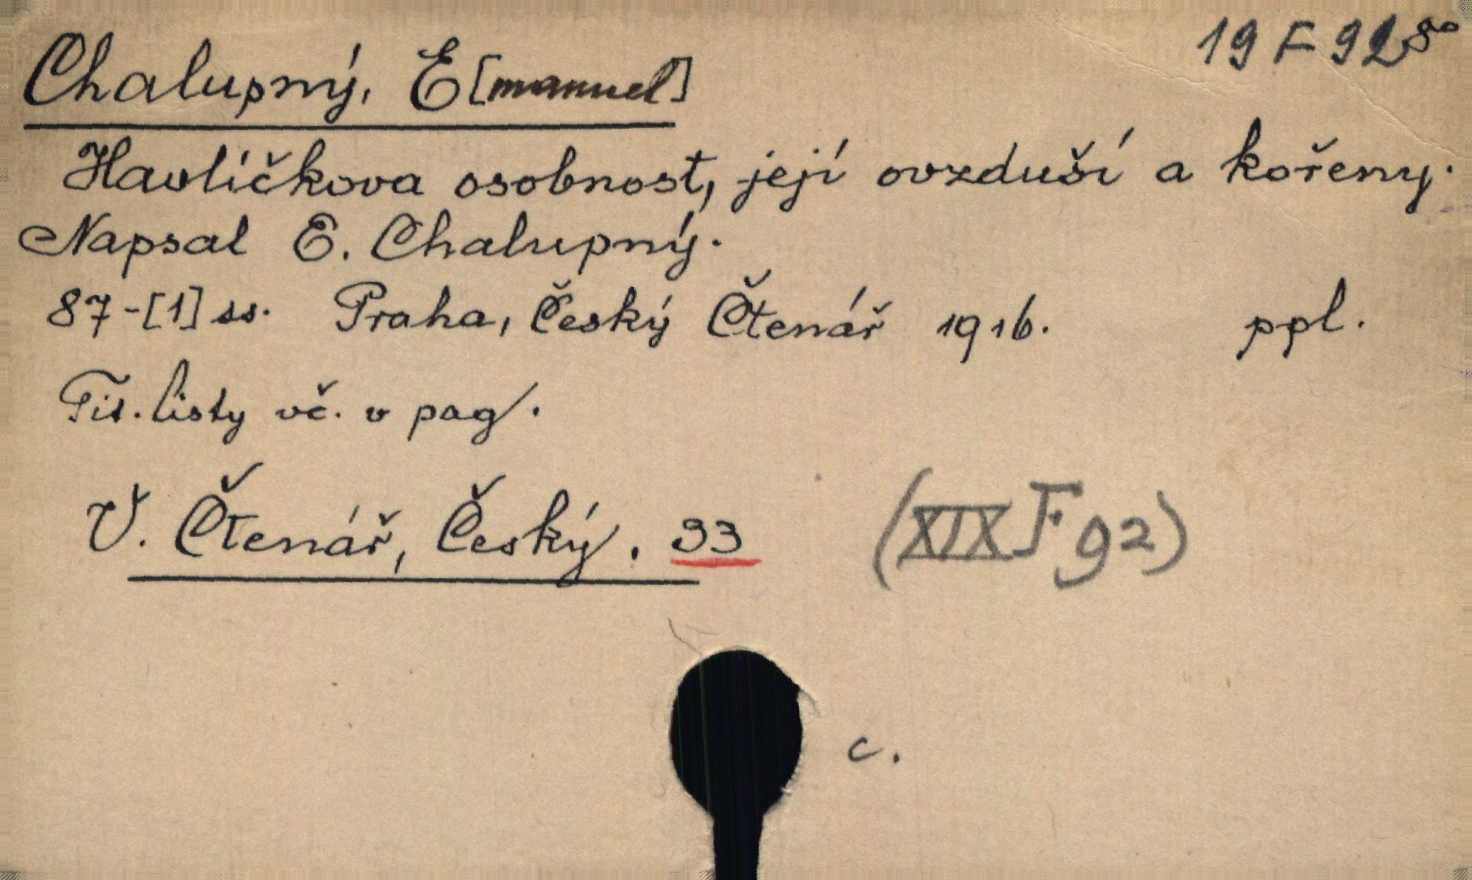 19 F 92 8°
Chalupný, E[manuel]
Havlíčkova osobnost, její ovzduší a kořeny.
Napsal E. Chalupný.
87-[1] ss. Praha, Český Čtenář 1916. ppl.
Tit. listy vč. v pag.
V. Čtenář, Český. 93 (XIX F 92)
c.